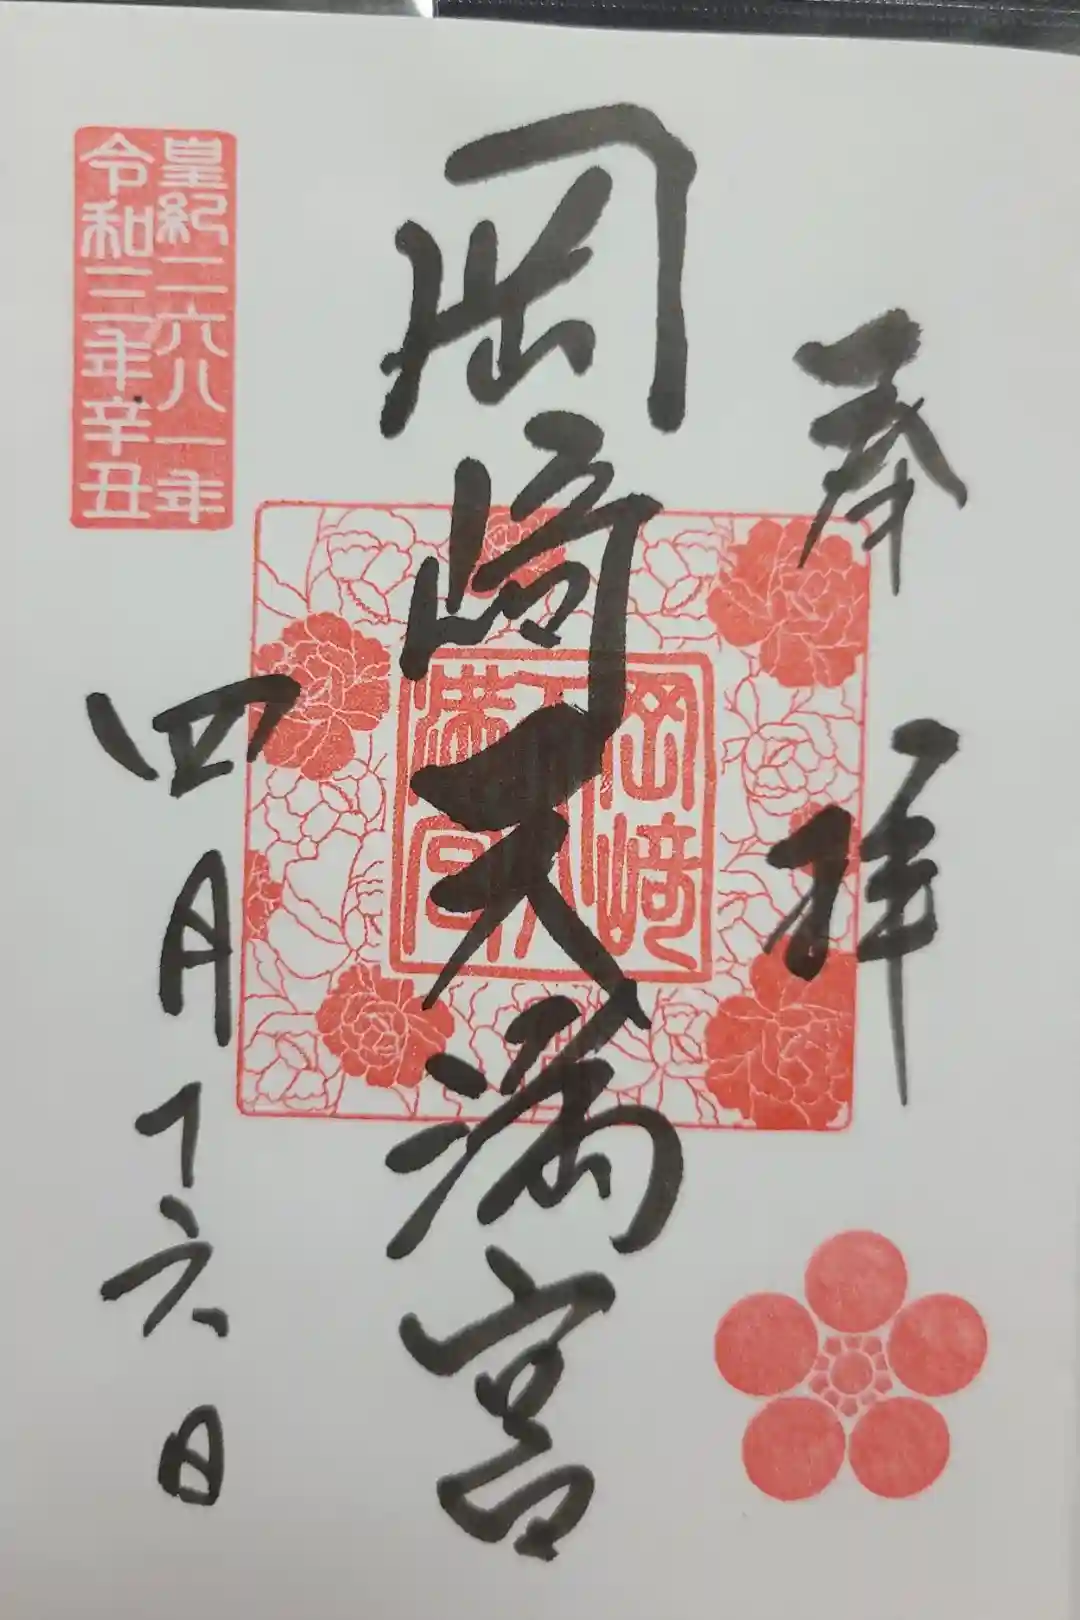 奉拝
岡崎天満宮
岡崎天満宮
皇紀二六八一年
令和三年辛丑
四月十六日